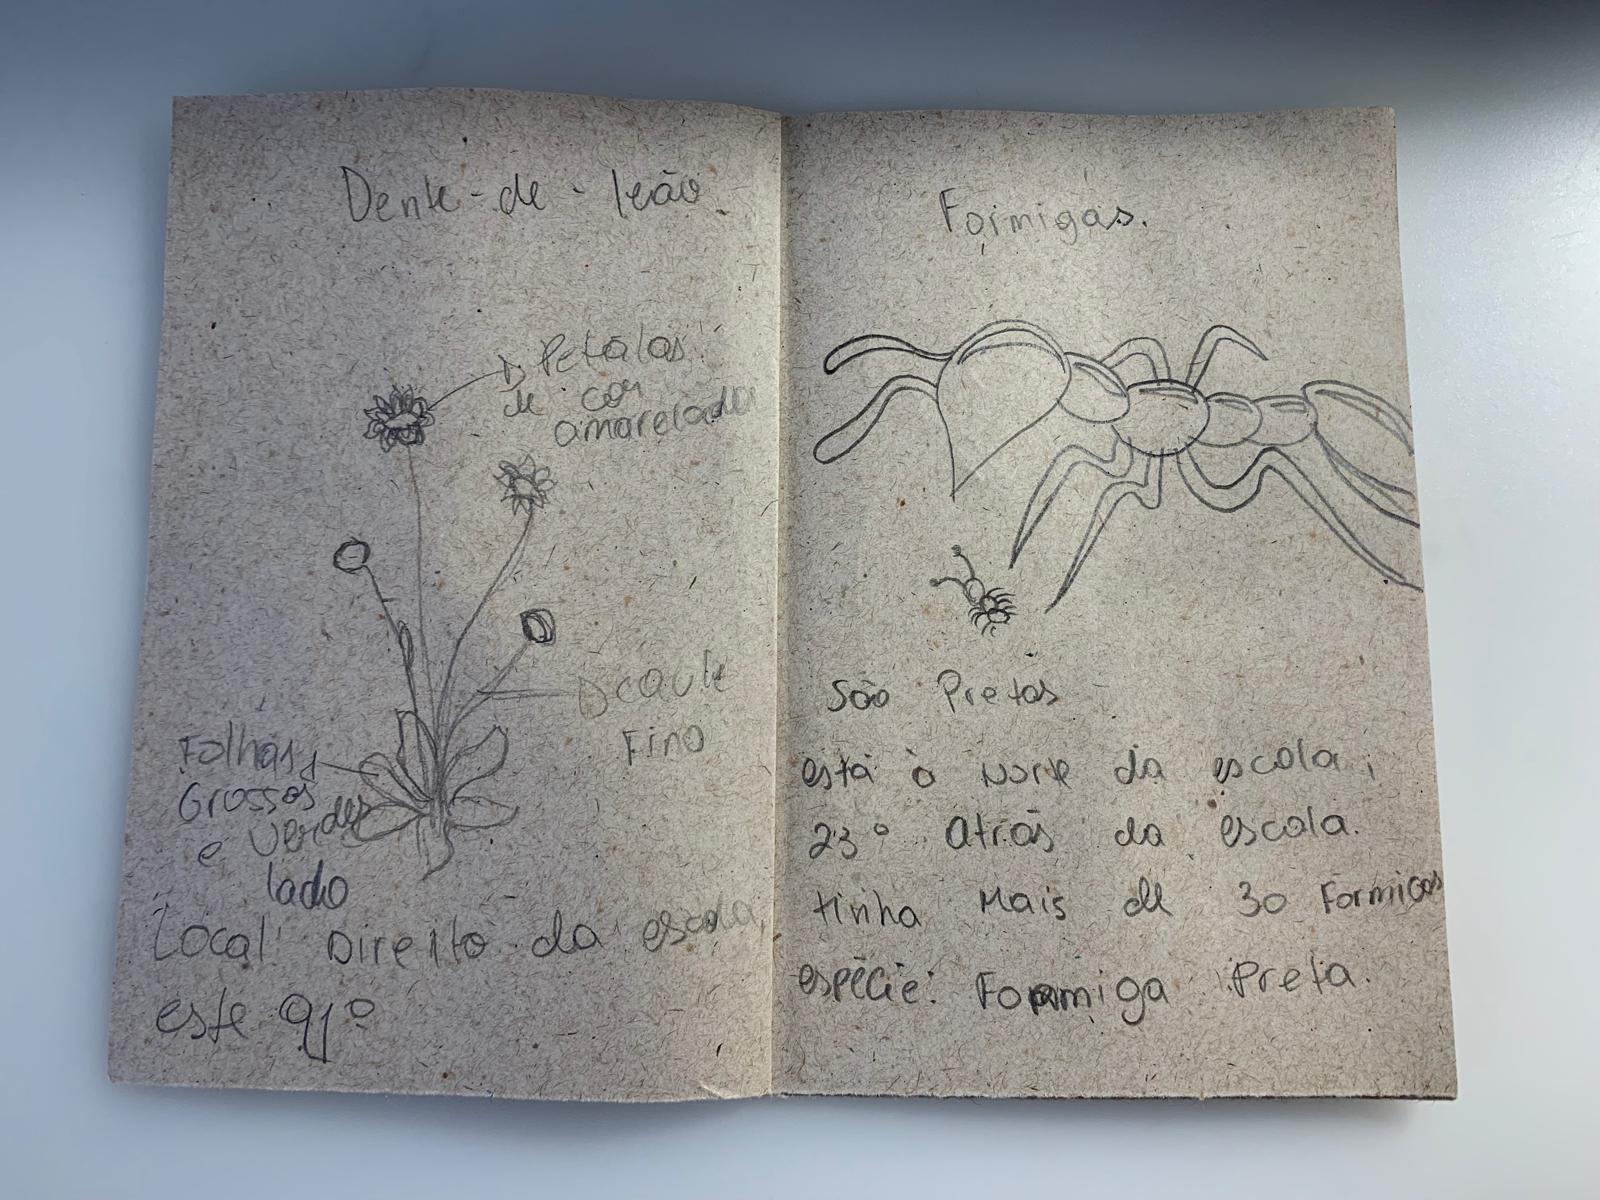 Dente-de-leão
Petalas
de cor
amarelada
caule
Fino
Folhas
Grossas
e verdes
lado
Local: Direito da escola,
este 91º
Formigas.
São Pretas
está à Norte da escola,
23º Atrás da escola.
tinha Mais de 30 Formigas
espécie: Formiga Preta.